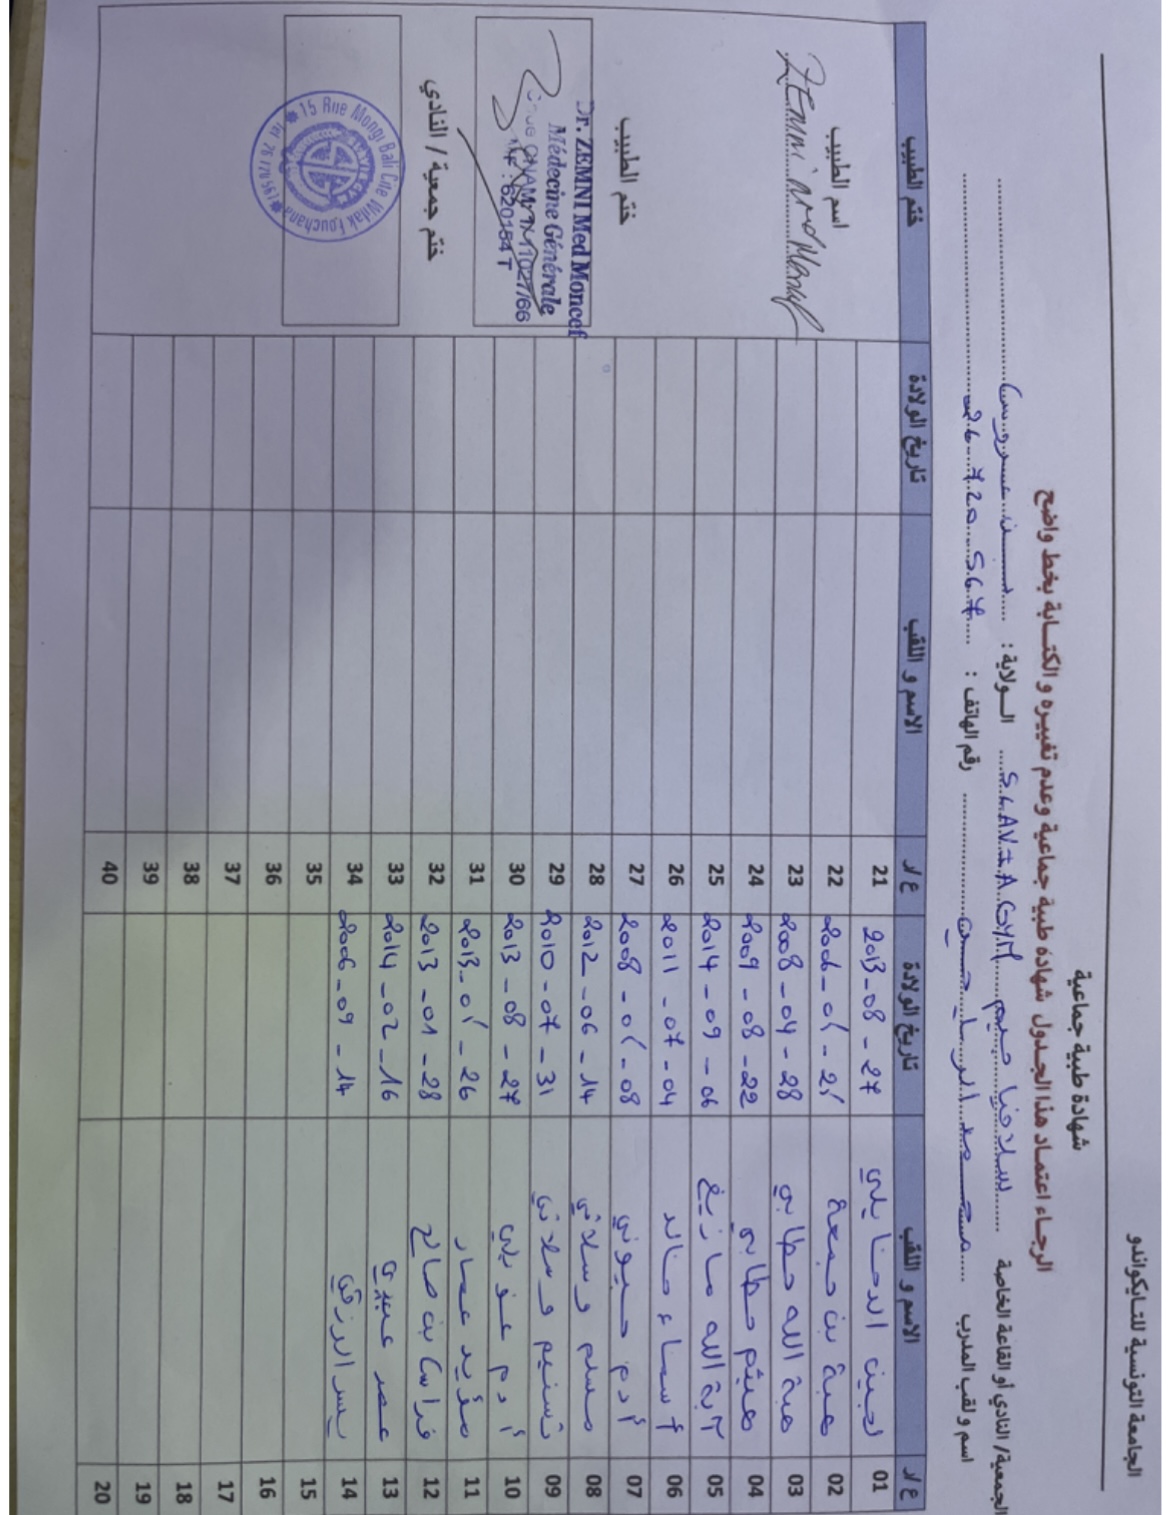 الجامعة التونسية للتايكواندو
شهادة طبية جماعية
الرجاء اعتماد هذا الجدول شهادة طبية جماعية وعدم تغييره و الكتابة بخط واضح
الجمعية/ النادي أو القاعة الخاصة سلافيا جيم SLAVIA GYM الولاية : بن عروس
اسم و لقب المدرب رقم الهاتف : 26 720 567
ع/ر الاسم و اللقب تاريخ الولادة ع/ر الاسم و اللقب تاريخ الولادة ختم الطبيب
01 لجين الدخايلي 2013-08-27 21
02 هبة بن جمعة 22
03 هبة الله حطابي 2008-04-28 23
04 هيثم حطابي 2009-08-22 24
05 آية الله مازيغ 2014-09-06 25
06 أسماء خالد 2011-07-04 26
07 أدم جيوني 27
08 مسلم وسلاتي 2012-06-14 28
09 تسنيم وسلاتي 2010-07-31 29
10 أدم عويلي 2013-08-27 30
11 مؤيد عمار 31
12 فراس بن صالح 2013-01-28 32
13 عمر عبيدي 2014-02-16 33
14 يسر الرزقي 2006-09-14 34
15 35
16 36
17 37
18 38
19 39
20 40
اسم الطبيب
Zemni Med Moncef
ختم الطبيب
Dr. ZEMNI Med Moncef
Médecine Générale
CNAM 1/11027/66
MF : 620154 T
ختم جمعية / النادي
15 Rue Mongi Bali Cité Wifak Fouchana